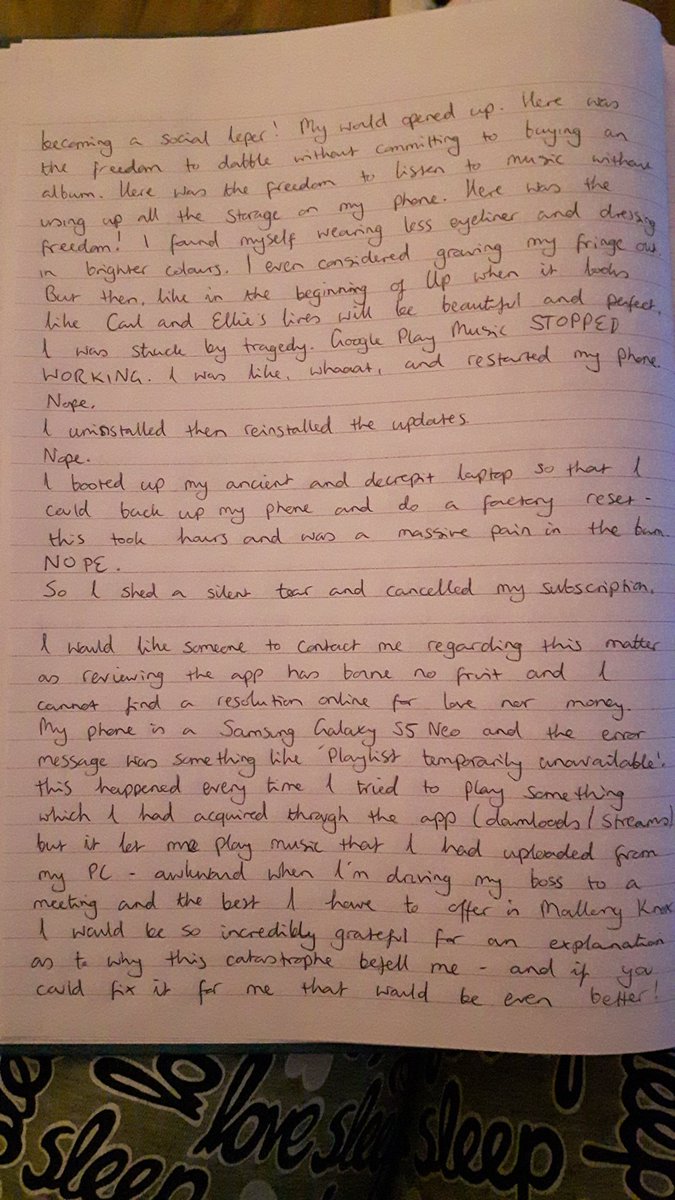 becoming a social leper! My world opened up. Here was
the freedom to dabble without committing to buying an
album. Here was the freedom to listen to music without
using up all the storage on my phone. Here was the
freedom! I found myself wearing less eyeliner and dressing
in brighter colours. I even considered growing my fringe out.
But then, like in the beginning of Up when it looks
like Carl and Ellie's lives will be beautiful and perfect,
I was struck by tragedy. Google Play Music STOPPED
WORKING. I was like, whaaat, and restarted my phone.
Nope.
I uninstalled then reinstalled the updates.
Nope.
I booted up my ancient and decrepit laptop so that I
could back up my phone and do a factory reset -
this took hours and was a massive pain in the bum.
NOPE.
So I shed a silent tear and cancelled my subscription.
I would like someone to contact me regarding this matter
as reviewing the app has borne no fruit and I
cannot find a resolution online for love nor money.
My phone is a Samsung Galaxy S5 Neo and the error
message was something like 'Playlist temporarily unavailable'.
this happened every time I tried to play something
which I had acquired through the app (downloads/streams)
but it let me play music that I had uploaded from
my PC - awkward when I'm driving my boss to a
meeting and the best I have to offer is Mallory Knox
I would be so incredibly grateful for an explanation
as to why this catastrophe befell me - and if you
could fix it for me that would be even better!
love sleep
sleep
sleep